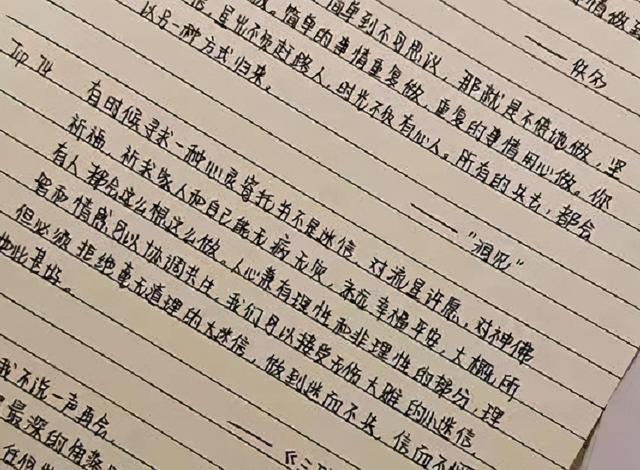 简单到不可思议，那就是不停地做，坚
做。简单的事情重复做，重复的事情用心做。你
信，星光不负赶路人，时光不负有心人。所有的失去，都会
以另一种方式归来。
——佚名
Top 74
有时候寻求一种心灵寄托并不是迷信，对流星许愿，对神佛
祈福，祈求家人和自己能无病无灾，永远幸福平安，大概所
有人都会这么想这么做。人心兼有理性和非理性的部分，理
智和情感可以协调共生，我们可以接受无伤大雅的小迷信，
但必须拒绝毫无道理的大迷信，做到迷而不失，信而不
如此甚好。
——“洞见”
我不说一声再会，
最深的角落